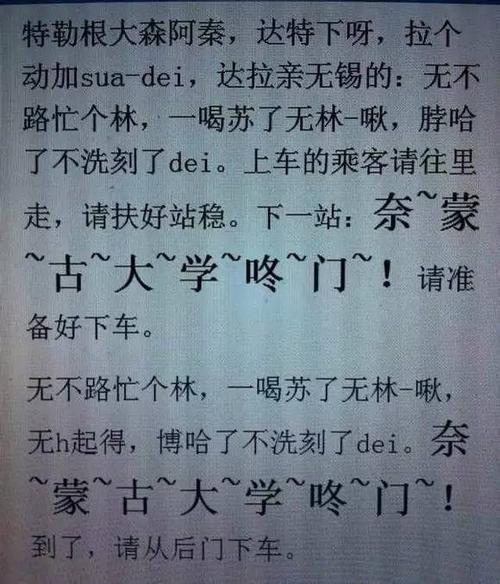 特勒根大森阿秦，达特下呀，拉个
动加sua-dei，达拉亲无锡的：无不
路忙个林，一喝苏了无林-啾，脖哈
了不洗刻了dei。上车的乘客请往里
走，请扶好站稳。下一站：奈~蒙
~古~大~学~咚~门~！请准
备好下车。
无不路忙个林，一喝苏了无林-啾，
无h起得，博哈了不洗刻了dei。奈
~蒙~古~大~学~咚~门~！
到了，请从后门下车。